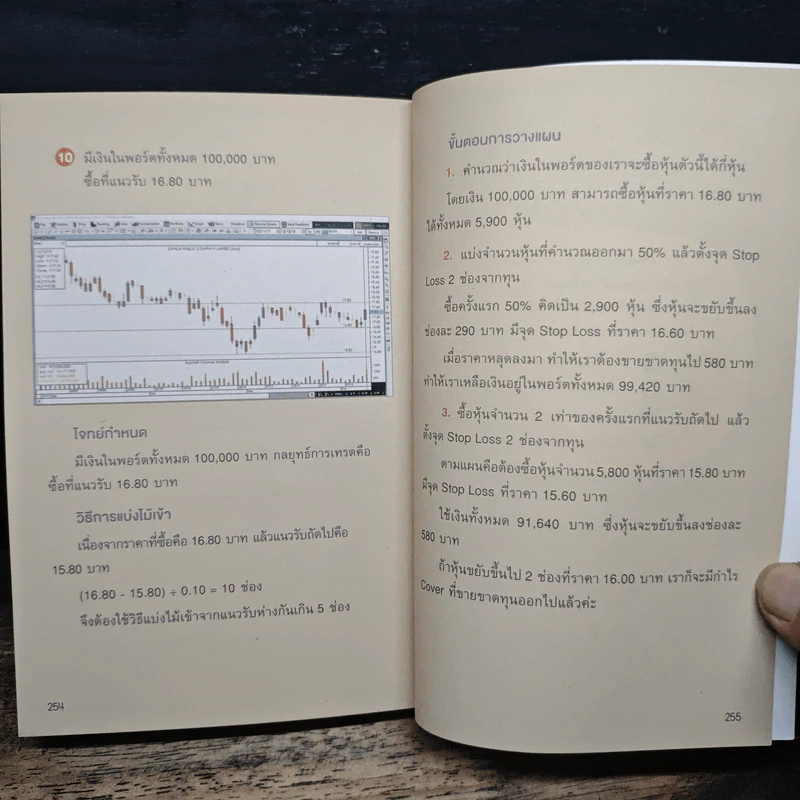 10 มีเงินในพอร์ตทั้งหมด 100,000 บาท
ซื้อที่แนวรับ 16.80 บาท
โจทย์กำหนด
มีเงินในพอร์ตทั้งหมด 100,000 บาท กลยุทธ์การเทรดคือ
ซื้อที่แนวรับ 16.80 บาท
วิธีการแบ่งไม้เข้า
เนื่องจากราคาที่ซื้อคือ 16.80 บาท แล้วแนวรับถัดไปคือ
15.80 บาท
(16.80 - 15.80) ÷ 0.10 = 10 ช่อง
จึงต้องใช้วิธีแบ่งไม้เข้าจากแนวรับห่างกันเกิน 5 ช่อง
254
ขั้นตอนการวางแผน
1. คำนวณว่าเงินในพอร์ตของเราจะซื้อหุ้นตัวนี้ได้กี่หุ้น
โดยเงิน 100,000 บาท สามารถซื้อหุ้นที่ราคา 16.80 บาท
ได้ทั้งหมด 5,900 หุ้น
2. แบ่งจำนวนหุ้นที่คำนวณออกมา 50% แล้วตั้งจุด Stop
Loss 2 ช่องจากทุน
ซื้อครั้งแรก 50% คิดเป็น 2,900 หุ้น ซึ่งหุ้นจะขยับขึ้นลง
ช่องละ 290 บาท มีจุด Stop Loss ที่ราคา 16.60 บาท
เมื่อราคาหลุดลงมา ทำให้เราต้องขายขาดทุนไป 580 บาท
ทำให้เราเหลือเงินอยู่ในพอร์ตทั้งหมด 99,420 บาท
3. ซื้อหุ้นจำนวน 2 เท่าของครั้งแรกที่แนวรับถัดไป แล้ว
ตั้งจุด Stop Loss 2 ช่องจากทุน
ตามแผนคือต้องซื้อหุ้นจำนวน 5,800 หุ้นที่ราคา 15.80 บาท
มีจุด Stop Loss ที่ราคา 15.60 บาท
ใช้เงินทั้งหมด 91,640 บาท ซึ่งหุ้นจะขยับขึ้นลงช่องละ
580 บาท
ถ้าหุ้นขยับขึ้นไป 2 ช่องที่ราคา 16.00 บาท เราก็จะมีกำไร
Cover ที่ขายขาดทุนออกไปแล้วค่ะ
255